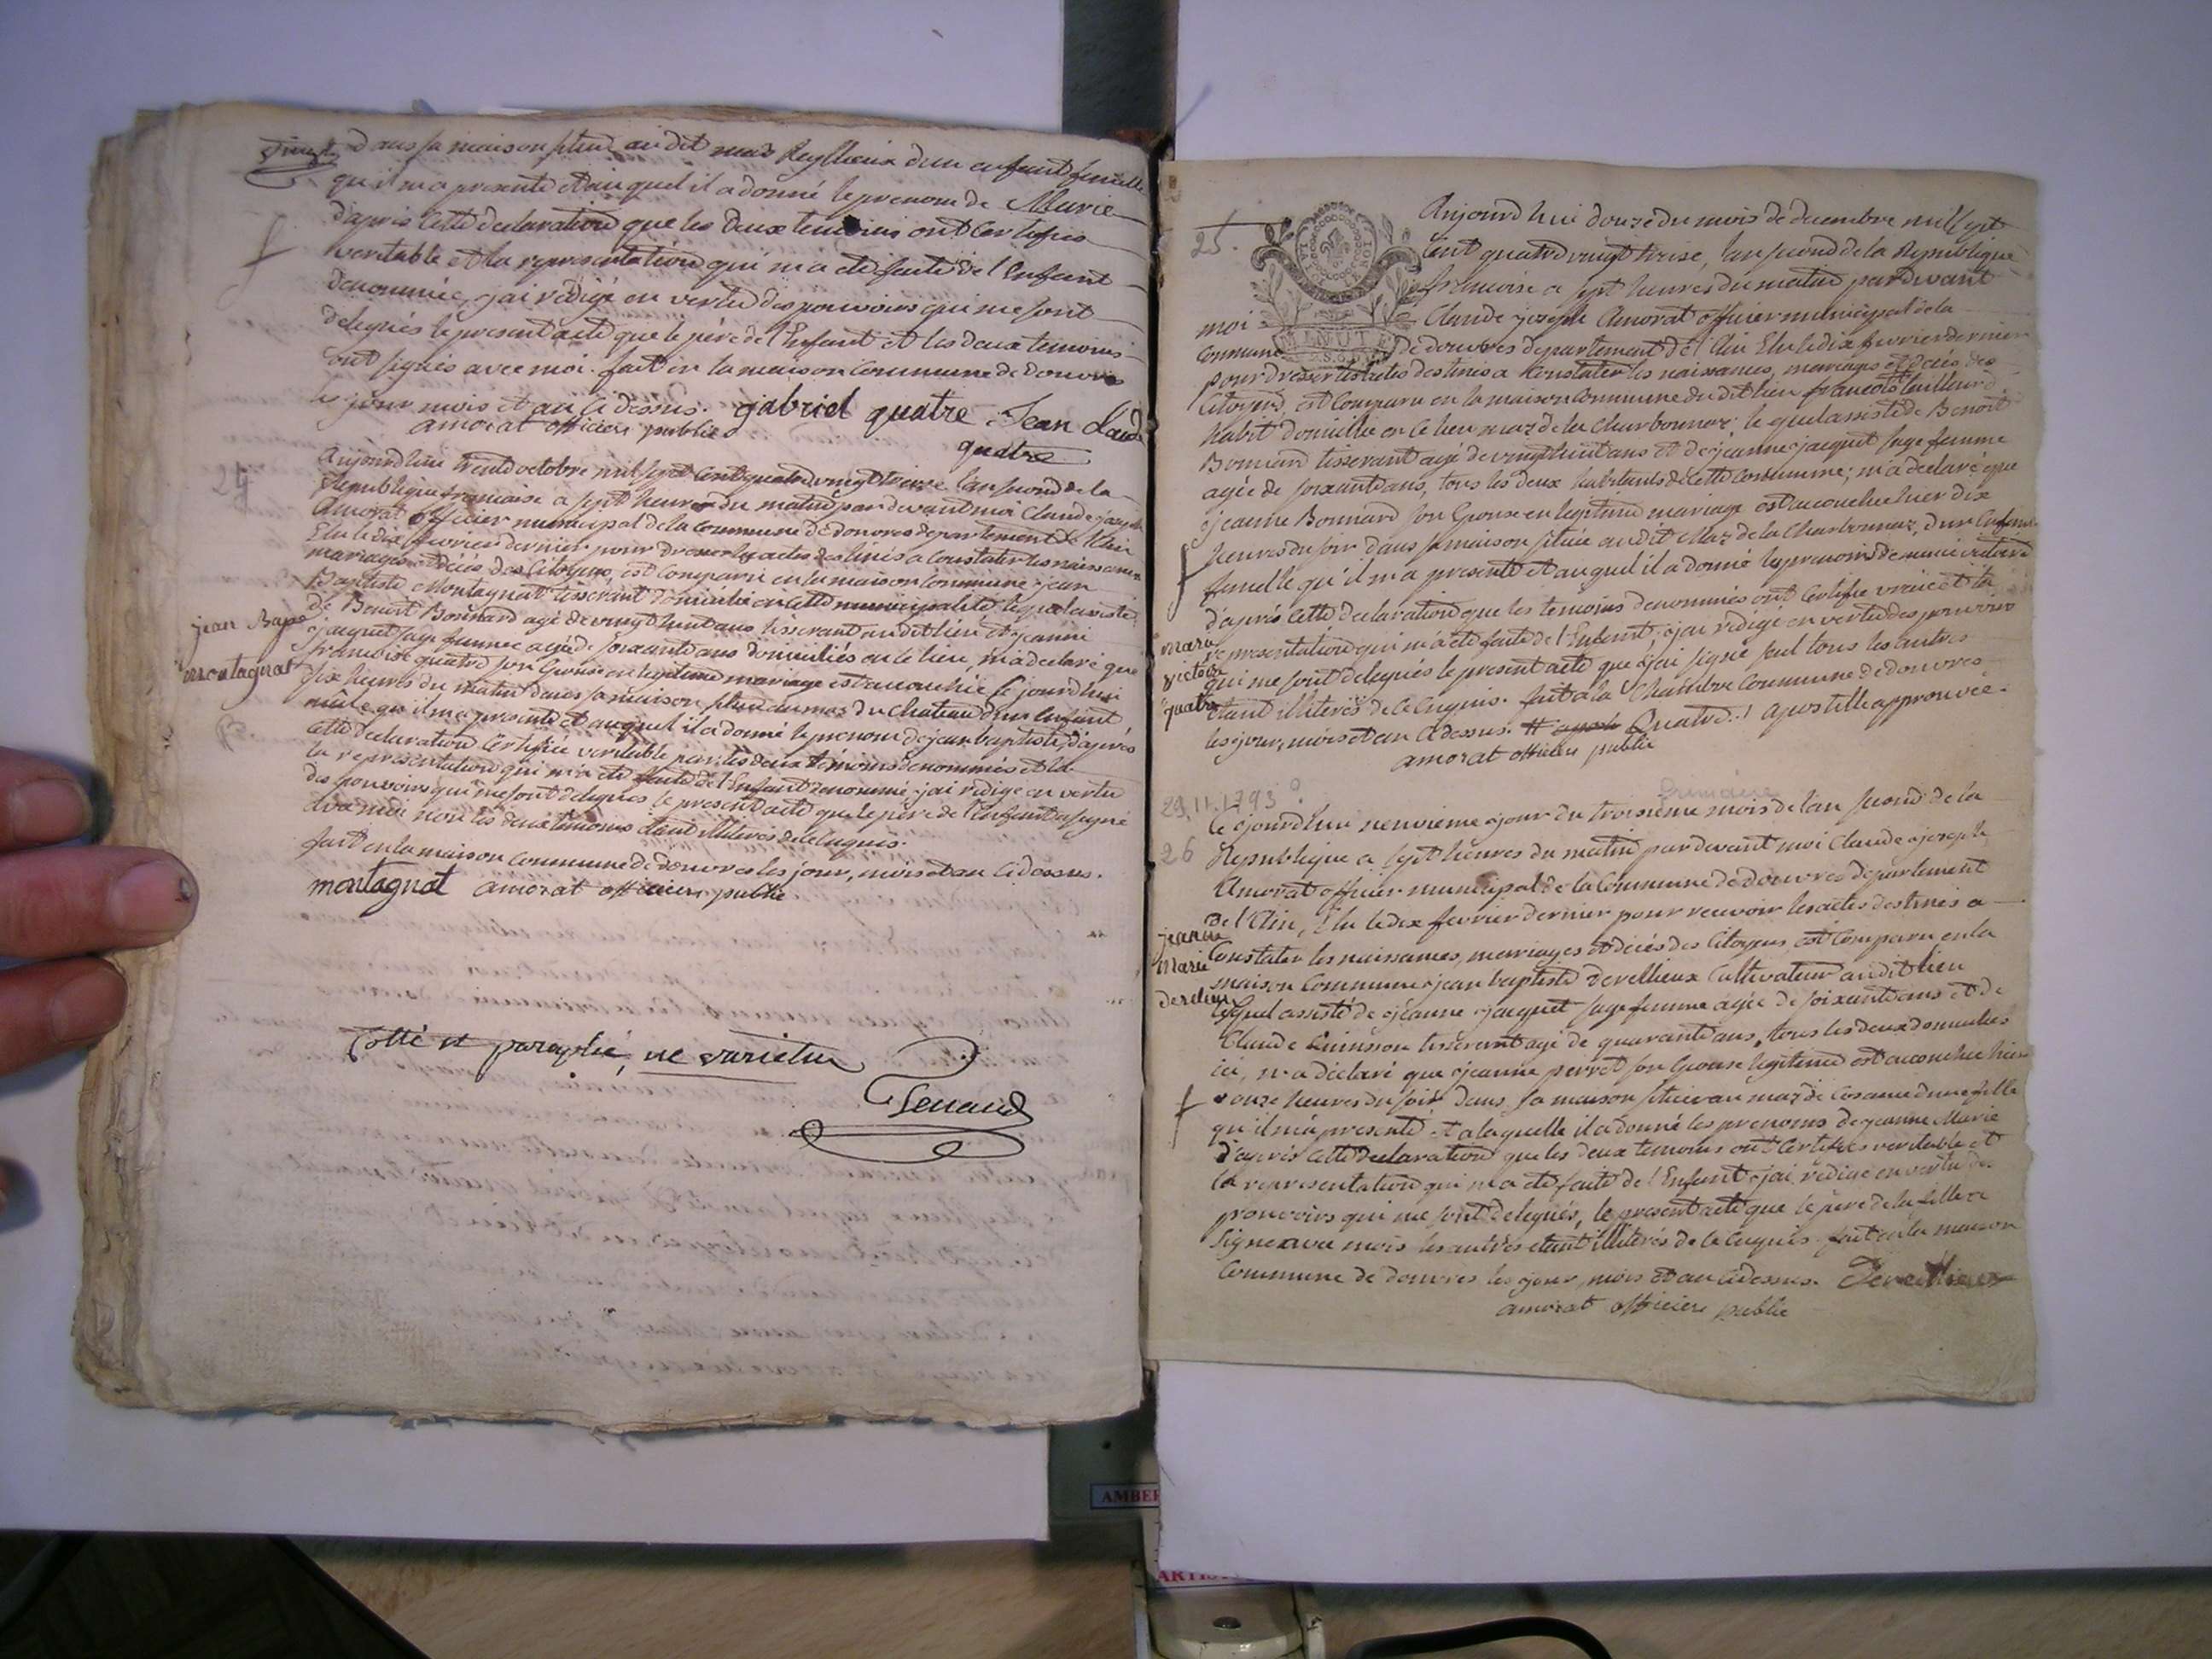 dans sa maison située audit mas Reylieux d'un enfant femelle
qu'il m'a presenté et auquel il a donné le prenom de Marie
d'apres cette declaration que les deux temoins ont certifiés
veritable et la representation qui m'a eté faite de l'Enfant
denommée, j'ai rédigé en vertu des pouvoirs qui me sont
delegués le present acte que le père de l'Enfant et les deux temoins
ont signés avec moi. fait en la maison Commune de douvres
les jour mois et an ci dessus. gabriel quatre Jean Claude
amorat officier public quatre
24
aujourd'hui trente octobre mil sept cent quatre vingt treize l'an second de la
Republique francaise a sept heures du matin par devant moi Claude joseph
Amorat officier municipal de la Commune de douvres departement de l'Ain
Elu le dix fevrier dernier pour dresser les actes destinés a constater les naissances
mariages et décés des Citoyens, est Comparu en la maison Commune jean
Baptiste Montagnat tisserant domicilié en cette municipalité lequel assisté
de Benoit Bonnard agé de vingt huit ans tisserant audit lieu et jeanne
jean Bap.
jacquet sage femme agée de soixante ans domiciliés en ce lieu, m'a declaré que
francoise quatre son Epouse en legitime mariage est accouchée ce jourd'hui
montagnat
six heures du matin dans sa maison située au mas du Chateau d'un Enfant
mâle qu'il m'a presenté et auquel il a donné le prenom de jean baptiste, d'aprés
cette declaration Certifiée veritable par les deux témoins denommés et la
la representation qui m'a eté faite de l'Enfant denommé j'ai rédigé en vertu
des pouvoirs qui me sont delegués le present acte que le père de l'Enfant a signé
avec moi non les deux temoins etant illiterés de ce enquis.
fait en la maison Commune de douvres les jour, mois et an ci dessus.
montagnat amorat officier public
Cotté et paraphé, ne varietur
25.
Aujourd'hui douze du mois de decembre mil sept
cent quatre vingt treize, l'an second de la Republique
francoise a sept heures du matin par devant
moi Claude joseph Amorat officier municipal de la
MINUTE
Commune de douvres departement de l'Ain Elu le dix fevrier dernier
pour dresser les actes destinés a constater les naissances, mariages et décés des
Citoyens, est Comparu en la maison Commune du dit lieu francois tailleur d
habit domicilié en ce lieu maz de la Charbonnaz; lequel assisté de Benoit
Bonnard tisserant agé de vingt huit ans et de jeanne jacquet sage femme
agée de soixante ans, tous les deux habitants de cette Commune; m'a declaré que
jeanne Bonnard son Epouse en legitime mariage est accouchée hier dix
heures du soir dans sa maison située audit Maz de la Charbonnaz, d'un Enfant
femelle qu'il m'a presenté et auquel il a donné les prenoms de marie victoire
d'aprés cette declaration que les temoins denommés ont certifié vraie et la
marie
representation qui m'a eté faite de l'Enfant, j'ai rédigé en vertu des pouvoirs
victoire
qui me sont delegués le present acte que j'ai signé seul tous les autres
quatre
etant illiterés de ce enquis. fait a la Chambre Commune de douvres
les jour, mois et an ci dessus. Quatre..! apostille approuvée.
amorat officier public
29.11.1793 ?
frimaire
26
Ce jourd'hui neuvieme jour du troisième mois de l'an second de la
Republique a sept heures du matin par devant moi Claude joseph
Amorat officier municipal de la Commune de douvres departement
de l'Ain, Elu le dix fevrier dernier pour recevoir les actes destinés a
jeanne
Constater les naissances, mariages et décés des Citoyens, est Comparu en la
Marie
maison Commune jean baptiste Derellieux Cultivateur audit lieu
Lequel assisté de jeanne jacquet sage femme agée de soixante ans et de
Claude tisserant agé de quarante ans, tous les deux domiciliés
ici, m'a declaré que jeanne perret son Epouse legitime est accouchée hier
onze heures du soir dans sa maison située au maz de d'une fille
qu'il m'a presenté et a laquelle il a donné les prenoms de jeanne Marie
d'aprés cette declaration que les deux temoins ont certifiés veritable et
la representation qui m'a eté faite de l'Enfant j'ai rédigé en vertu des
pouvoirs qui me sont delegués, le present acte que le père de la fille a
signé avec mois les autres etant illiterés de ce enquis. fait en la maison
Commune de douvres les jour, mois et an ci dessus. Derellieux
amorat officier public
AMBER